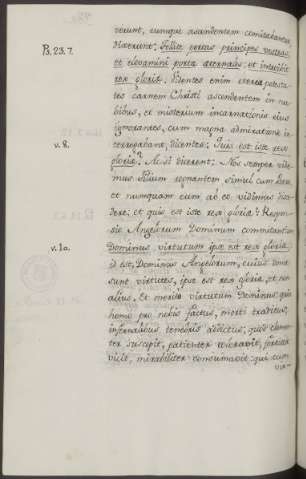 verunt, eumque ascendentem comitabantur
Ps. 23. 7.
dixerunt: Tollite portas principes vestras,
et elevamini portæ æternales, et introibit
rex gloriæ. Videntes enim aëreæ potesta-
tes carnem Christi ascendentem in nu-
bibus, et misterium incarnationis ejus
ignorantes, cum magna admiratione in-
v. 8.
terrogabant, dicentes: Quis est iste rex
gloriæ? Ac si dicerent: Nos semper vidi-
mus Filium regnantem simul cum Patre,
et numquam eum ab eo vidimus
et quis est iste rex gloriæ? Respon-
Angelorum Dominum comitantium
v. 10.
Dominus virtutum ipse est rex gloriæ,
id est, Dominus Angelorum, cuius omnes
sunt virtutes, ipse est rex gloriæ, et non
alius. Et merito virtutum Dominus, qui
homo pro nobis factus, morti traditus,
infernalibus tenebris addictus; quæ clemen-
ter suscipit, patienter toleravit, fortiter
vicit, mirabiliter consummavit; qui cum